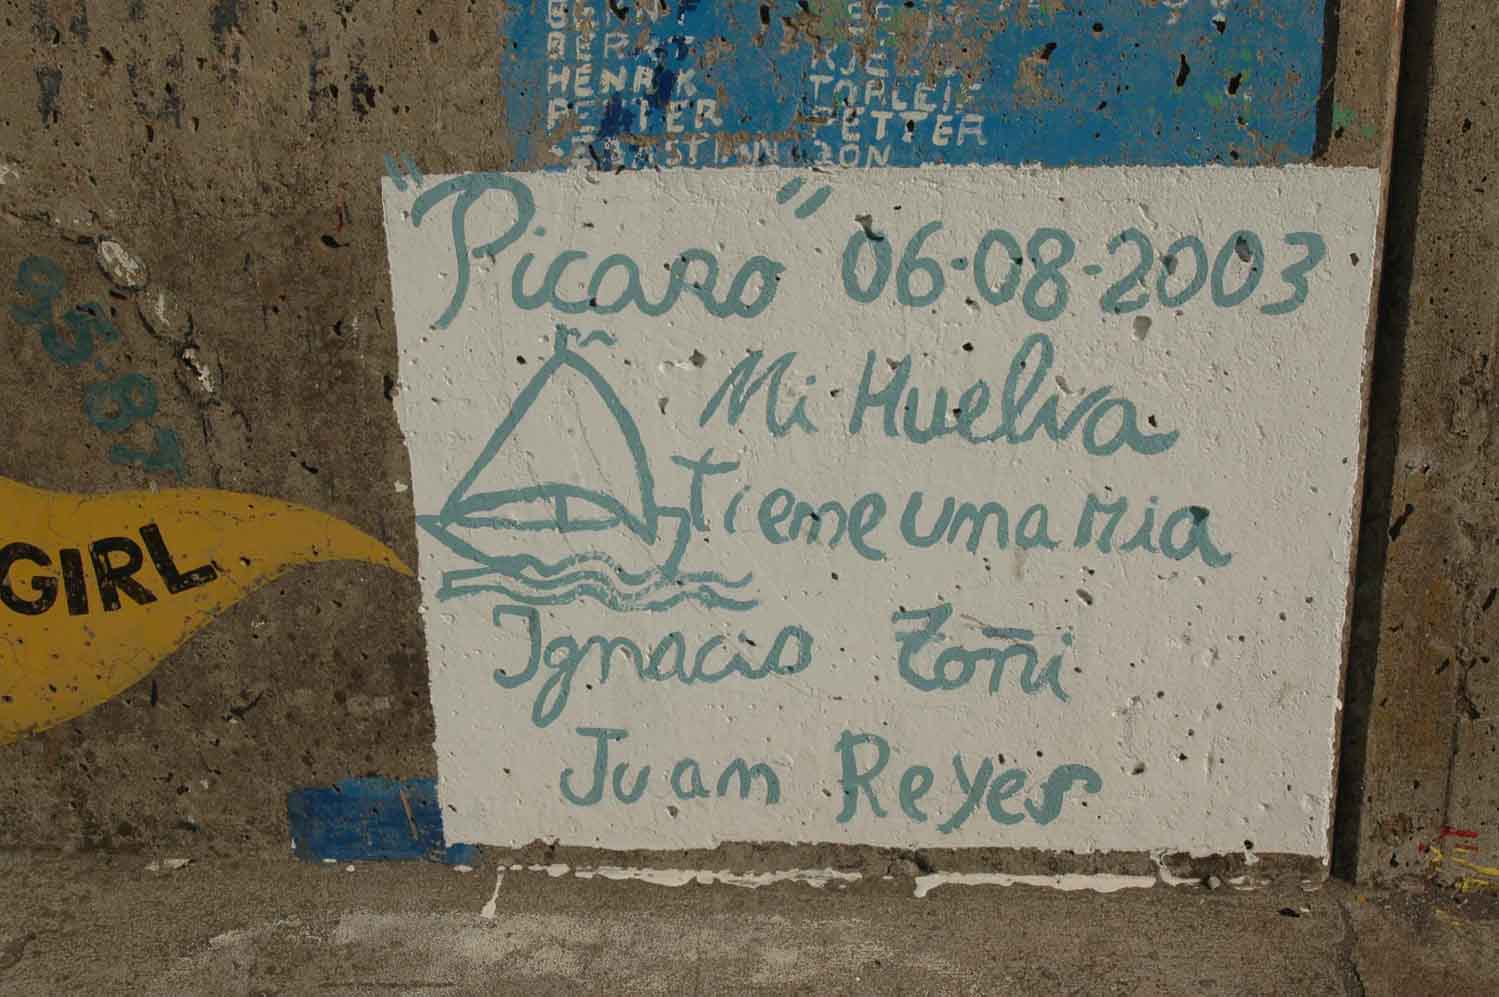 HENRIK TORLEIF
PETTER PETTER
JON
"Picaro" 06-08-2003
Mi Huelva
Tiene una Ria
Ignacio Toñi
Juan Reyes
95.87
GIRL